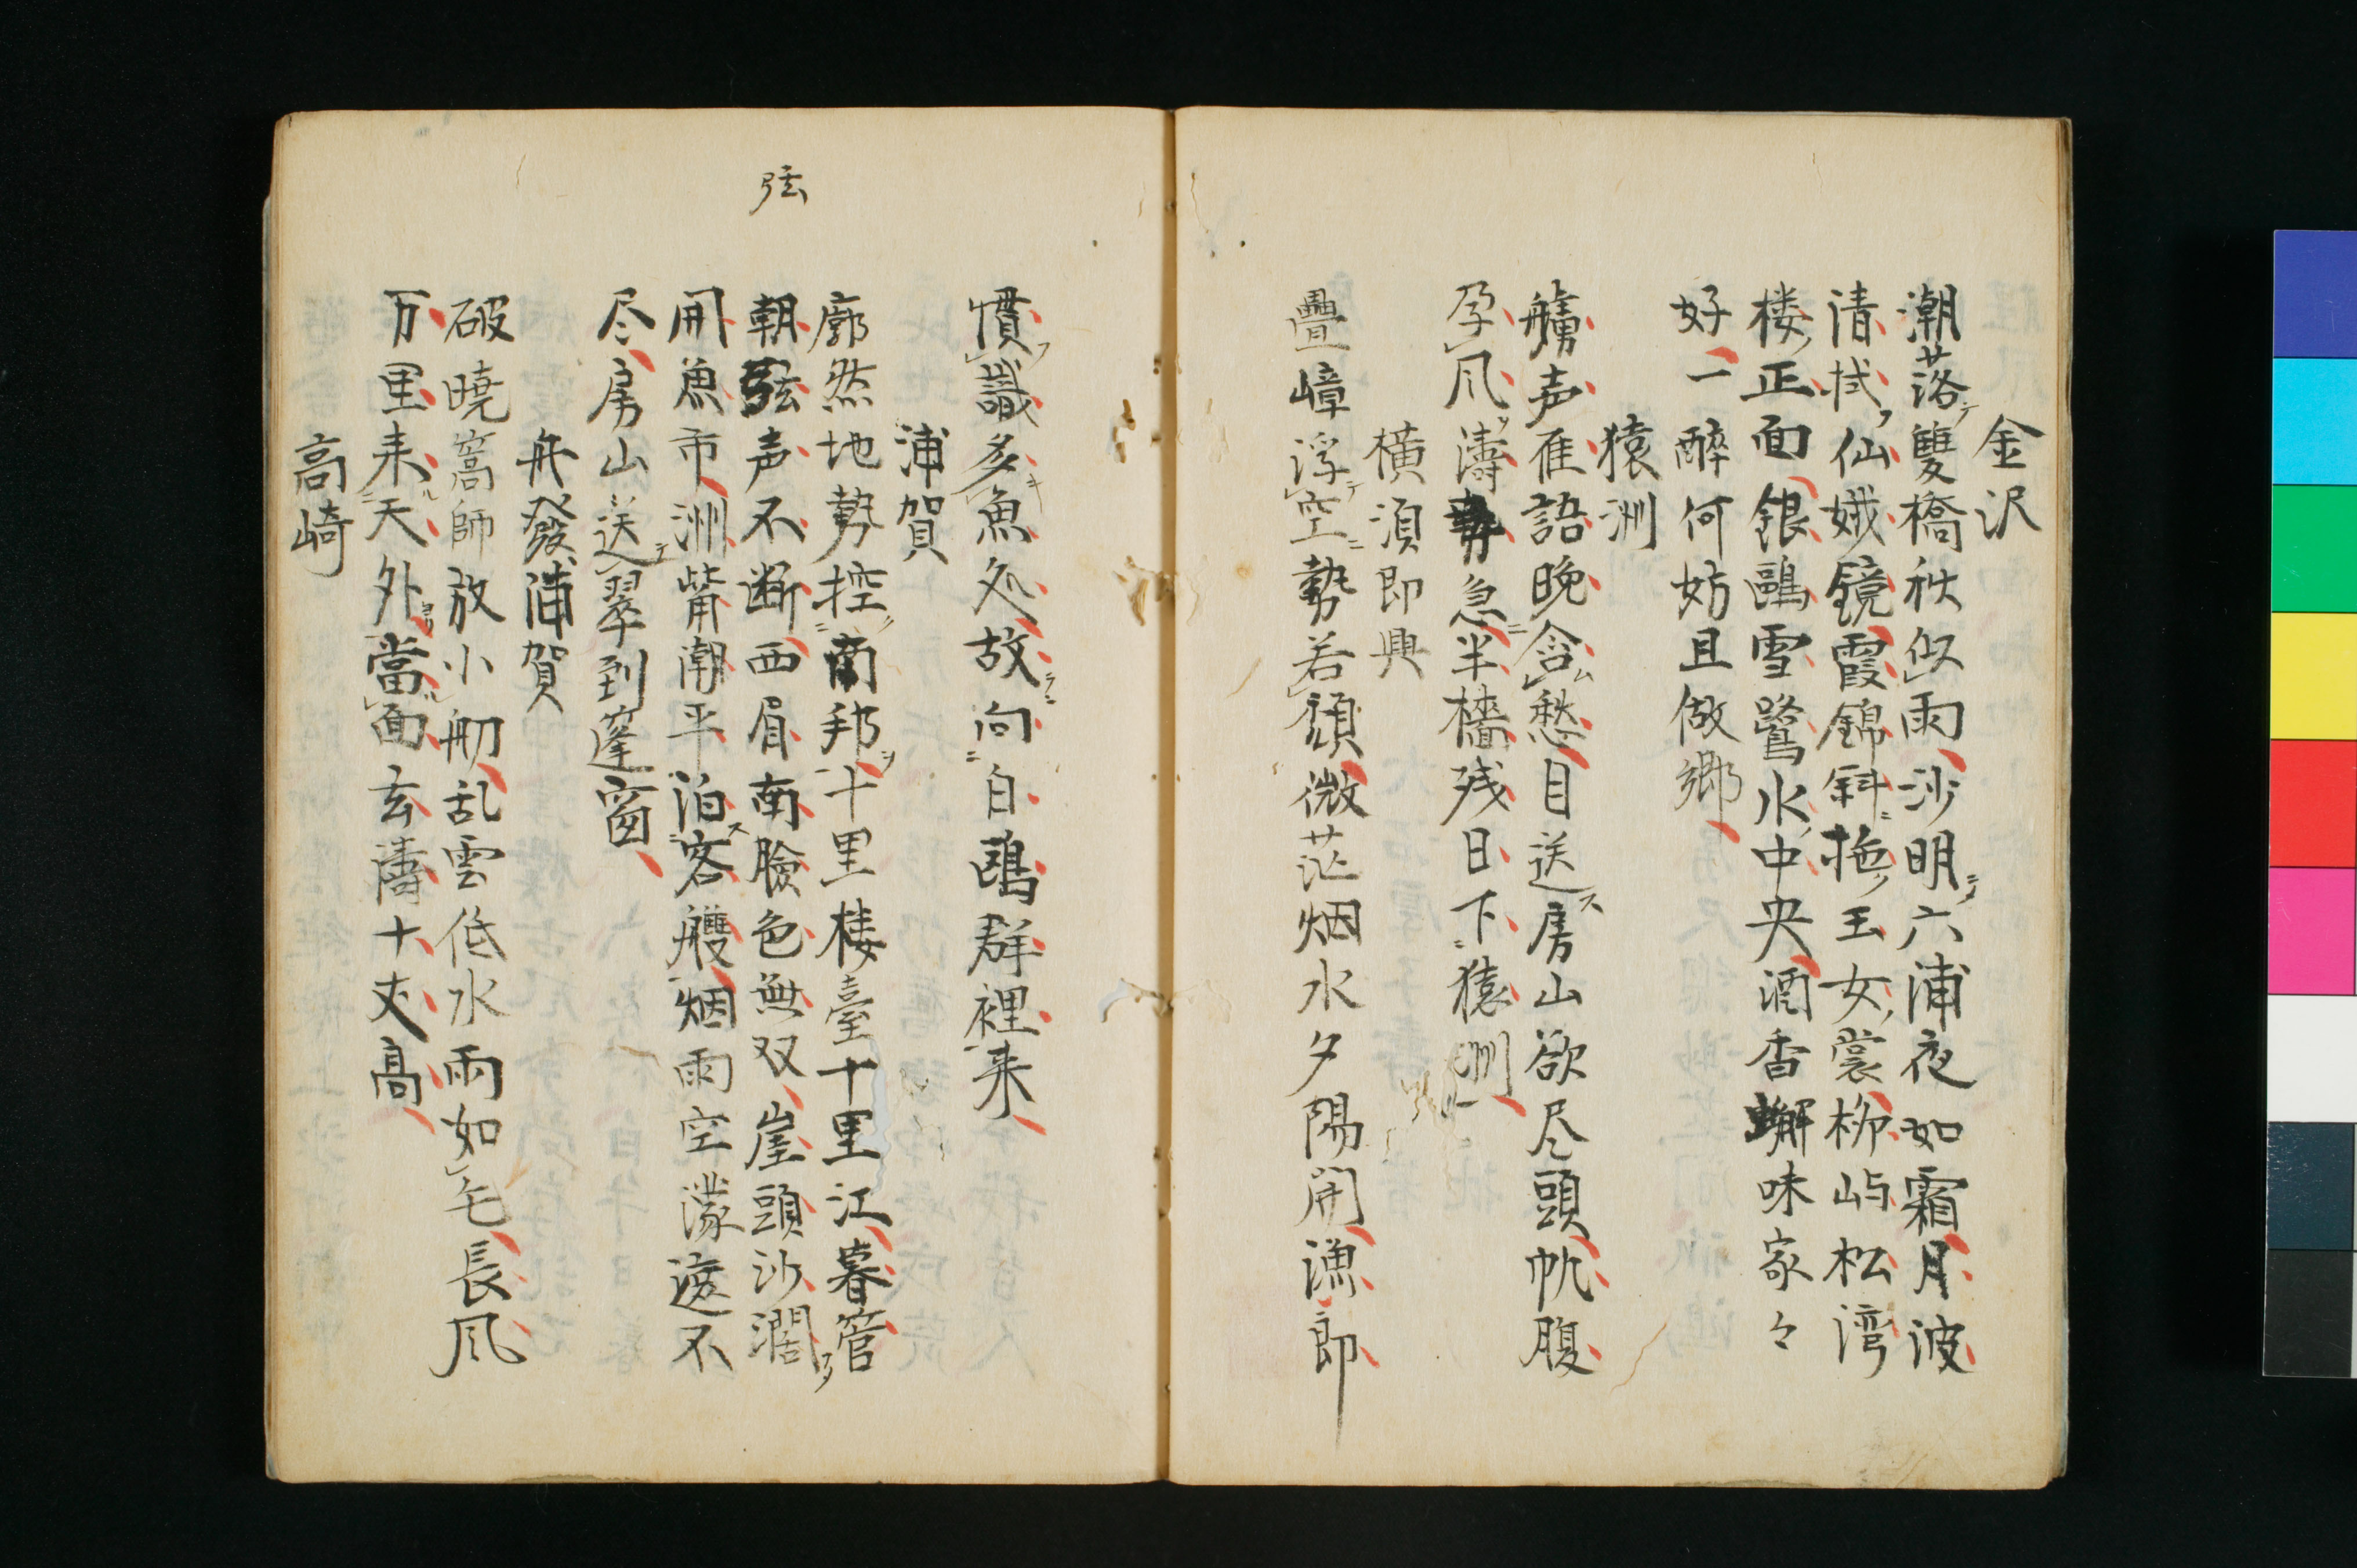 金沢
潮落雙橋秋似雨沙明六浦夜如霜月波
清拭仙娥鏡霞錦斜拖玉女裳柳屿松湾
楼正面銀鷗雪鷺水中央酒香蠏味家々
好一醉何妨且做郷
猿洲
艣声雁語晩含愁目送房山欲尽頭帆腹
孕風濤勢急半檣残日下猿洲
横須即興
疊嶂浮空勢若頽微茫烟水夕陽開漁郎
慣識多魚処故向白鷗群裡来
浦賀
廓然地勢控南邦十里楼臺十里江暮管
弦
朝弦声不断西眉南臉色無双崖頭沙濶
開魚市洲觜潮平泊客艭烟雨空濛遮不
尽房山送翠到篷窗
舟發浦賀
破曉篙師放小舠乱雲低水雨如毛長風
万里来天外當面玄濤十丈高
高崎